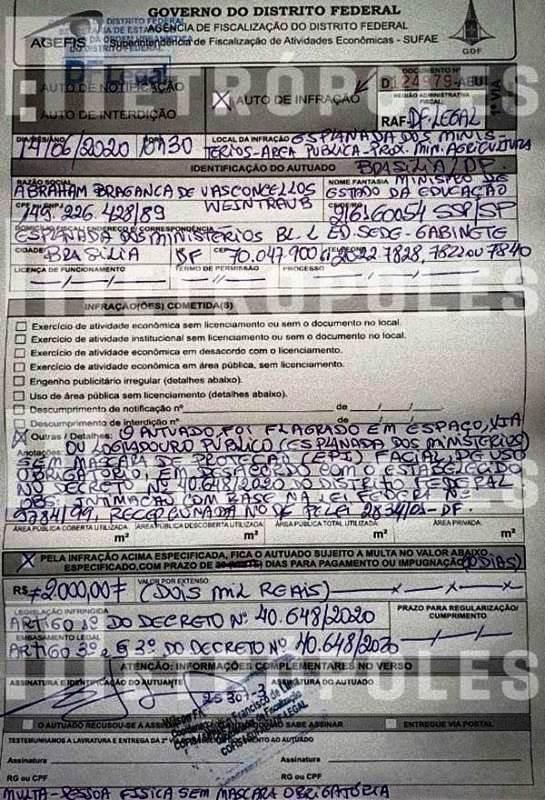 GOVERNO DO DISTRITO FEDERAL
AGÊNCIA DE FISCALIZAÇÃO DO DISTRITO FEDERAL
Superintendência de Fiscalização de Atividades Econômicas - SUFAE
AGEFIS
GDF
DF Legal
METRÓPOLES
AUTO DE NOTIFICAÇÃO
AUTO DE INTERDIÇÃO
X AUTO DE INFRAÇÃO
DOCUMENTO Nº
REGIÃO ADMINISTRATIVA
FISCAL:
RAF: DF LEGAL
1ª VIA
DIA/MÊS/ANO
14/06/2020
LOCAL DA INFRAÇÃO ESPLANADA DOS MINIS-
TÉRIOS-ÁREA PÚBLICA-PROX. MIN. AGRICULTURA
BRASÍLIA/DF.
IDENTIFICAÇÃO DO AUTUADO
RAZÃO SOCIAL
ABRAHAM BRAGANCA DE VASCONCELLOS
WEINTRAUB
NOME FANTASIA MINISTRO DE
ESTADO DA EDUCAÇÃO
SSP/SP
ESPLANADA DOS MINISTÉRIOS BL. L ED. SEDE - GABINETE
CIDADE
BRASÍLIA
DF
CEP
70.047.900
7828, 7822 ou 7840
LICENÇA DE FUNCIONAMENTO
TERMO DE PERMISSÃO
PROCESSO
INFRAÇÃO(ÕES) COMETIDA(S)
Exercício de atividade econômica sem licenciamento ou sem o documento no local.
Exercício de atividade institucional sem licenciamento ou sem o documento no local.
Exercício de atividade econômica em desacordo com o licenciamento.
Exercício de atividade econômica em área pública, sem licenciamento.
Engenho publicitário irregular (detalhes abaixo).
Uso de área pública sem licenciamento (detalhes abaixo).
Descumprimento de notificação nº de / /
Descumprimento de interdição nº de / /
X Outras / Detalhes: O AUTUADO FOI FLAGRADO EM ESPAÇO, VIA
Anotações: OU LOGRADOURO PÚBLICO (ESPLANADA DOS MINISTÉRIOS)
SEM MÁSCARA DE PROTEÇÃO (EPI) FACIAL, DE USO
OBRIGATÓRIO, EM DESACORDO COM O ESTABELECIDO
NO DECRETO Nº 40.648/2020 DO DISTRITO FEDERAL
OBS: INTIMAÇÃO COM BASE NA LEI FEDERAL Nº
9784/99, RECEPCIONADA NO DF P/ LEI 2834/01-DF.
ÁREA PÚBLICA COBERTA UTILIZADA
m²
ÁREA PÚBLICA DESCOBERTA UTILIZADA
m²
ÁREA PÚBLICA TOTAL UTILIZADA
m²
ÁREA PRIVADA
m²
X PELA INFRAÇÃO ACIMA ESPECIFICADA, FICA O AUTUADO SUJEITO A MULTA NO VALOR ABAIXO
ESPECIFICADO, COM PRAZO DE DIAS PARA PAGAMENTO OU IMPUGNAÇÃO (10 DIAS)
R$ =2000,00=
VALOR POR EXTENSO
(DOIS MIL REAIS)
LEGISLAÇÃO INFRINGIDA
ARTIGO 1º DO DECRETO Nº 40.648/2020
PRAZO PARA REGULARIZAÇÃO/
CUMPRIMENTO
EMBASAMENTO LEGAL
ARTIGO 3º DO DECRETO Nº 40.648/2020
ATENÇÃO: INFORMAÇÕES COMPLEMENTARES NO VERSO
ASSINATURA E IDENTIFICAÇÃO DO AUTUANTE
ASSINATURA DO AUTUADO
O AUTUADO RECUSOU-SE A ASSINAR
SABE ASSINAR
ENTREGUE VIA POSTAL
TESTEMUNHAMOS A LAVRATURA E ENTREGA DA 2ª AO AUTUADO
Assinatura:
RG ou CPF
Assinatura:
RG ou CPF
MULTA-PESSOA FÍSICA SEM MÁSCARA OBRIGATÓRIA